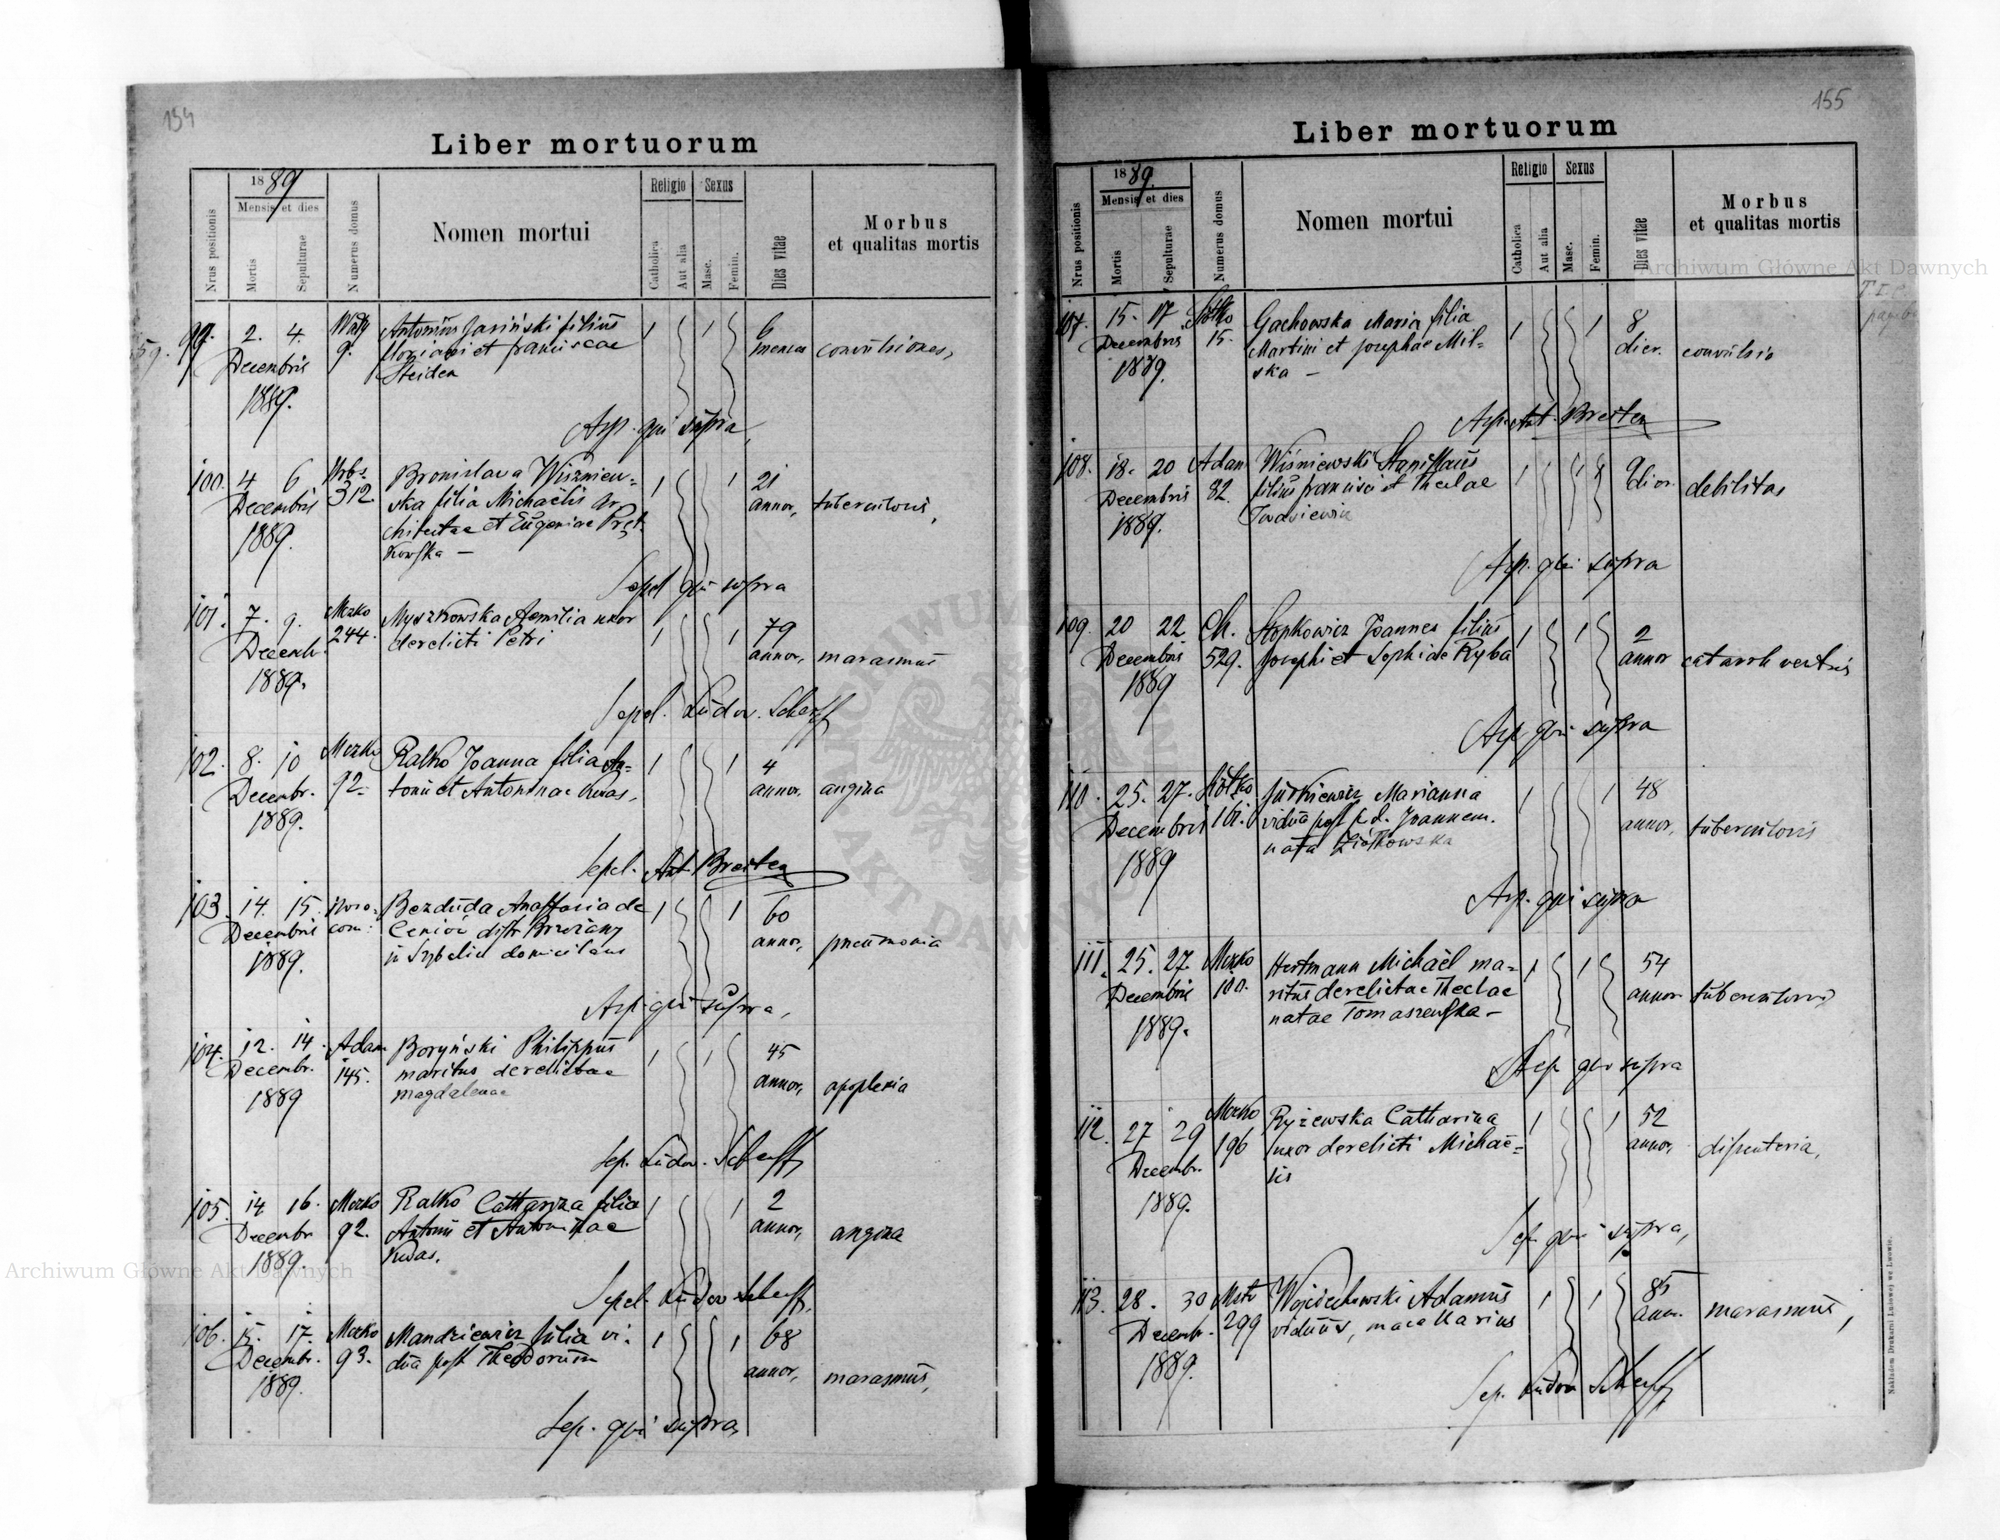 154
Liber mortuorum
1889
Mensis et dies
Religio
Sexus
Nrus positionis
Mortis
Sepulturae
Numerus domus
Nomen mortui
Catholica
Aut alia
Masc.
Femin.
Dies vitae
Morbus
et qualitas mortis
99. 2. 4.
Decembris
1889.
9.
Antonius Jasiński filius
Floriani et Franciscae
6
menses
convulsiones,
Asp. qui supra,
100. 4 6
Decembris
1889.
312.
Bronislava Wiszniew-
ska filia Michaëlis Ar-
chitectae et Eugeniae
kowska —
1 1
21
annor,
tuberculosis,
Sepel qui supra
101. 7. 9.
Decemb.
1889.
Mczko
244.
Myszkowska Aemilia uxor
derelicti Petri
1 1
79
annor,
marasmus
Sepel. Ludov. Scharff
102. 8. 10
Decembr.
1889.
Mczko
92.
Ratko Joanna filia An=
tonii et Antoninae Kwas,
1 1
4
annor.
angina
Sepel. Ant Breiter
103. 14. 15.
Decembris
1889.
Novo-
com:
Bezduda Anastasia de
Ceniów distr Brzeżany
in domicilans
1 1
60
annor,
pneumonia
Asp. qui supra,
104. 12. 14.
Decembr.
1889
Adam
145.
Boryński Philippus
maritus derelictae
Magdalenae
1 1
45
annor,
apoplexia
Sep. Ludov. Scharff
105. 14 16.
Decembr
1889.
Mczko
92.
Ratko Catharina filia
Antonii et Antoninae
Kwas.
1 1
2
annor,
angina
Sepel. Ludov Scharff,
106. 15. 17.
Decembr.
1889.
Mczko
93.
Mandziewicz Julia vi-
dua post Theodorum
1 1
68
annor,
marasmus,
Sep. qui supra,
155
Liber mortuorum
1889.
Mensis et dies
Religio
Sexus
Nrus positionis
Mortis
Sepulturae
Numerus domus
Nomen mortui
Catholica
Aut alia
Masc.
Femin.
Dies vitae
Morbus
et qualitas mortis
107. 15. 17
Decembris
1889.
15.
Gachowska Maria filia
Martini et Josephae Mil=
ska —
1 1
8
dier.
convulsio
Asp. Ant. Breiter
108. 18. 20
Decembris
1889.
Adam
82.
Wiśniewski Stanislaus
filius Francisci et Theclae
1 1
9 dier.
debilitas
Asp. qui supra
109. 20 22
Decembris
1889
Ch.
529.
Stopkowicz Joannes filius
Josephi et Sophiae Ryba
1 1
2
annor
catarrh ventris
Asp. qui supra
110. 25. 27.
Decembris
1889
161.
Jurkiewicz Marianna
vidua post p. d. Joannem.
nata Ziółkowska
1 1
48
annor,
tuberculosis
Asp. qui supra
111. 25. 27
Decembris
1889.
Mczko
100.
Hertmann Michaël ma=
ritus derelictae Theclae
natae Tomaszewska —
1 1
54
annor
tuberculosis
Sep qui supra
112. 27 29
Decembr.
1889.
Mczko
196
Ryżewska Catharina
uxor derelicti Michaë=
lis
1 1
52
annor,
disenteria,
Sep. qui supra,
113. 28. 30
Decemb.
1889.
Mstr
299
Wojciechowski Adamus
viduus, macellarius
1 1
85
ann.
marasmus,
Sep. Ludov Scharff
Nakładem Drukarni Ludowej we Lwowie.
Archiwum Główne Akt Dawnych
Archiwum Główne Akt Dawnych